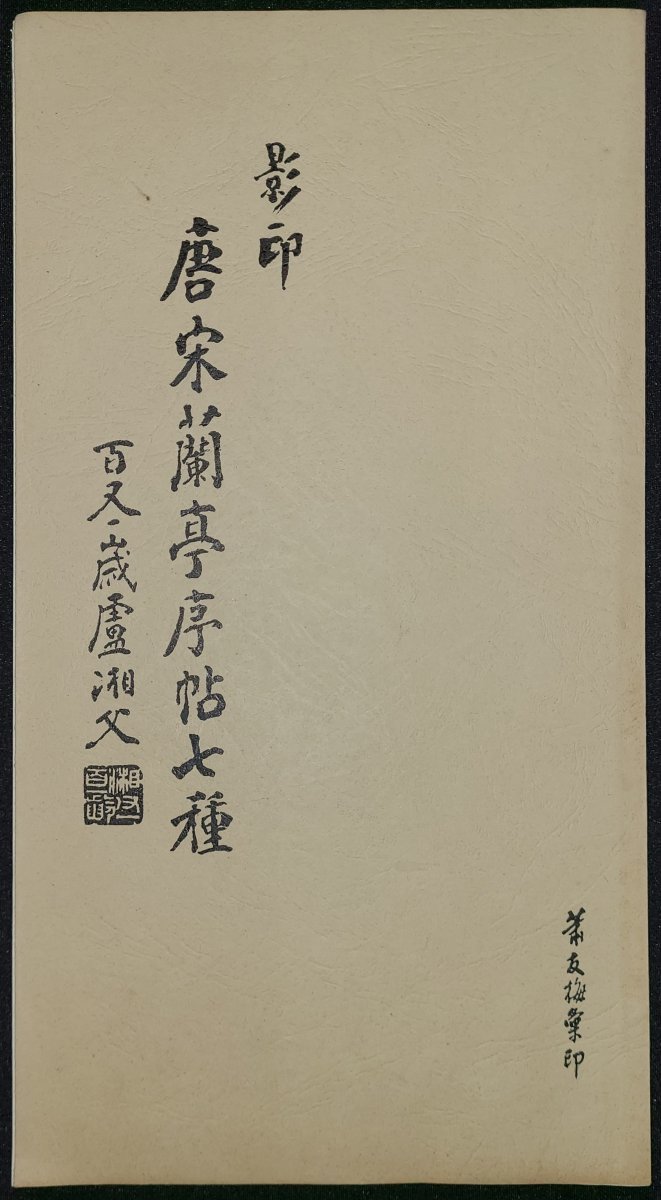 蕭友梅彙印
影印
唐宋蘭亭序帖七種
百又一歲盧湘父